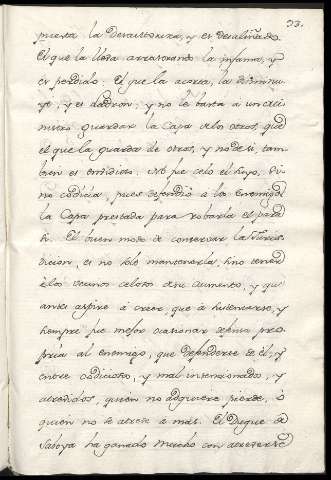 33.
puesta la Deractoriza, y es desaliñado.
El que la lleva arrastrando la infama, y
es perdido. El que la acorta, la disminu-
ye, y es Ladron; y no le basta a un Mi-
nistro guardar la Capa de los otros, que
el que la guarda de otros, y no de si, tam-
bien es codicioso. No fue celo el hoyo, si-
no codicia, pues defendió a los enemigos
la Capa prestada para robarla el para
si. El buen modo de conservar la Juris-
dicion, es no solo mantenerla, sino tener
à los vecinos celosos de su aumento, y que
antes aspire à crecer que à sustentarse, y
siempre fue mejor ocasionar defensa pro-
pria al enemigo, que defenderse de él; y
entre codiciosos, y mal intencionados, y
atrevidos, quien no adquiere pierde, ò
quien no se atreve a mas. El Duque de
Saboya ha ganado mucho con atreverse